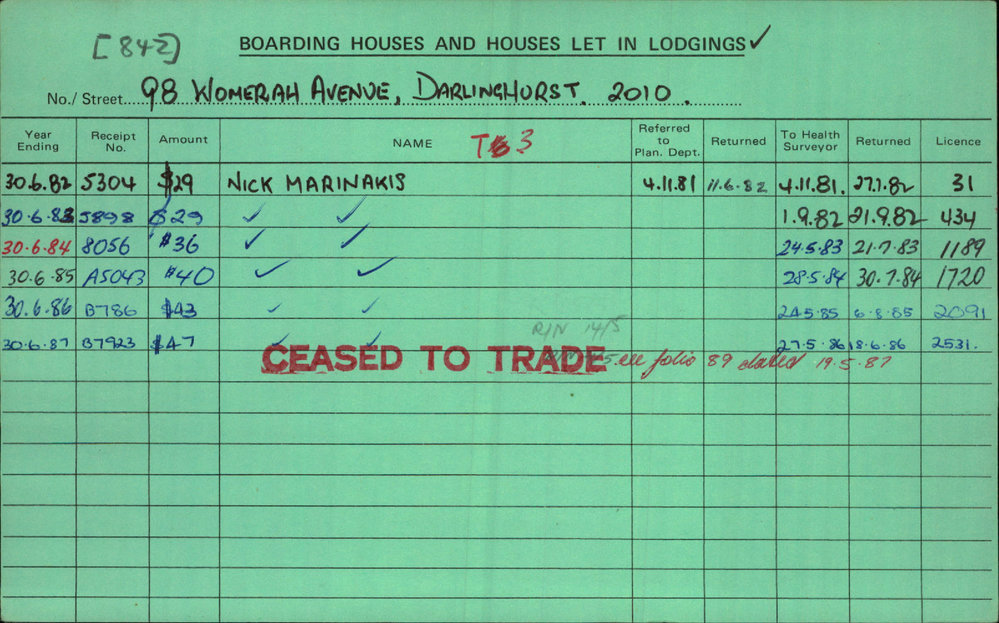 [842]
BOARDING HOUSES AND HOUSES LET IN LODGINGS ✓
No./ Street 98 WOMERAH AVENUE, DARLINGHURST. 2010.
Year Ending Receipt No. Amount NAME T 3 Referred to Plan. Dept. Returned To Health Surveyor Returned Licence
30.6.82 5304 $29 NICK MARINAKIS 4.11.81 11.6.82 4.11.81. 27.1.82 31
30.6.83 5898 $29 ✓ ✓ 1.9.82 21.9.82 434
30.6.84 8056 $36 ✓ ✓ 24.5.83 21.7.83 1189
30.6.85 A5043 $40 ✓ ✓ 28.5.84 30.7.84 1720
30.6.86 B786 $43 ✓ ✓ 24.5.85 6.8.85 2091
R/N 14/5
30.6.87 B7923 $47 ✓ ✓ 27.5.86 18.6.86 2531.
CEASED TO TRADE see folio 89 dated 19.5.87